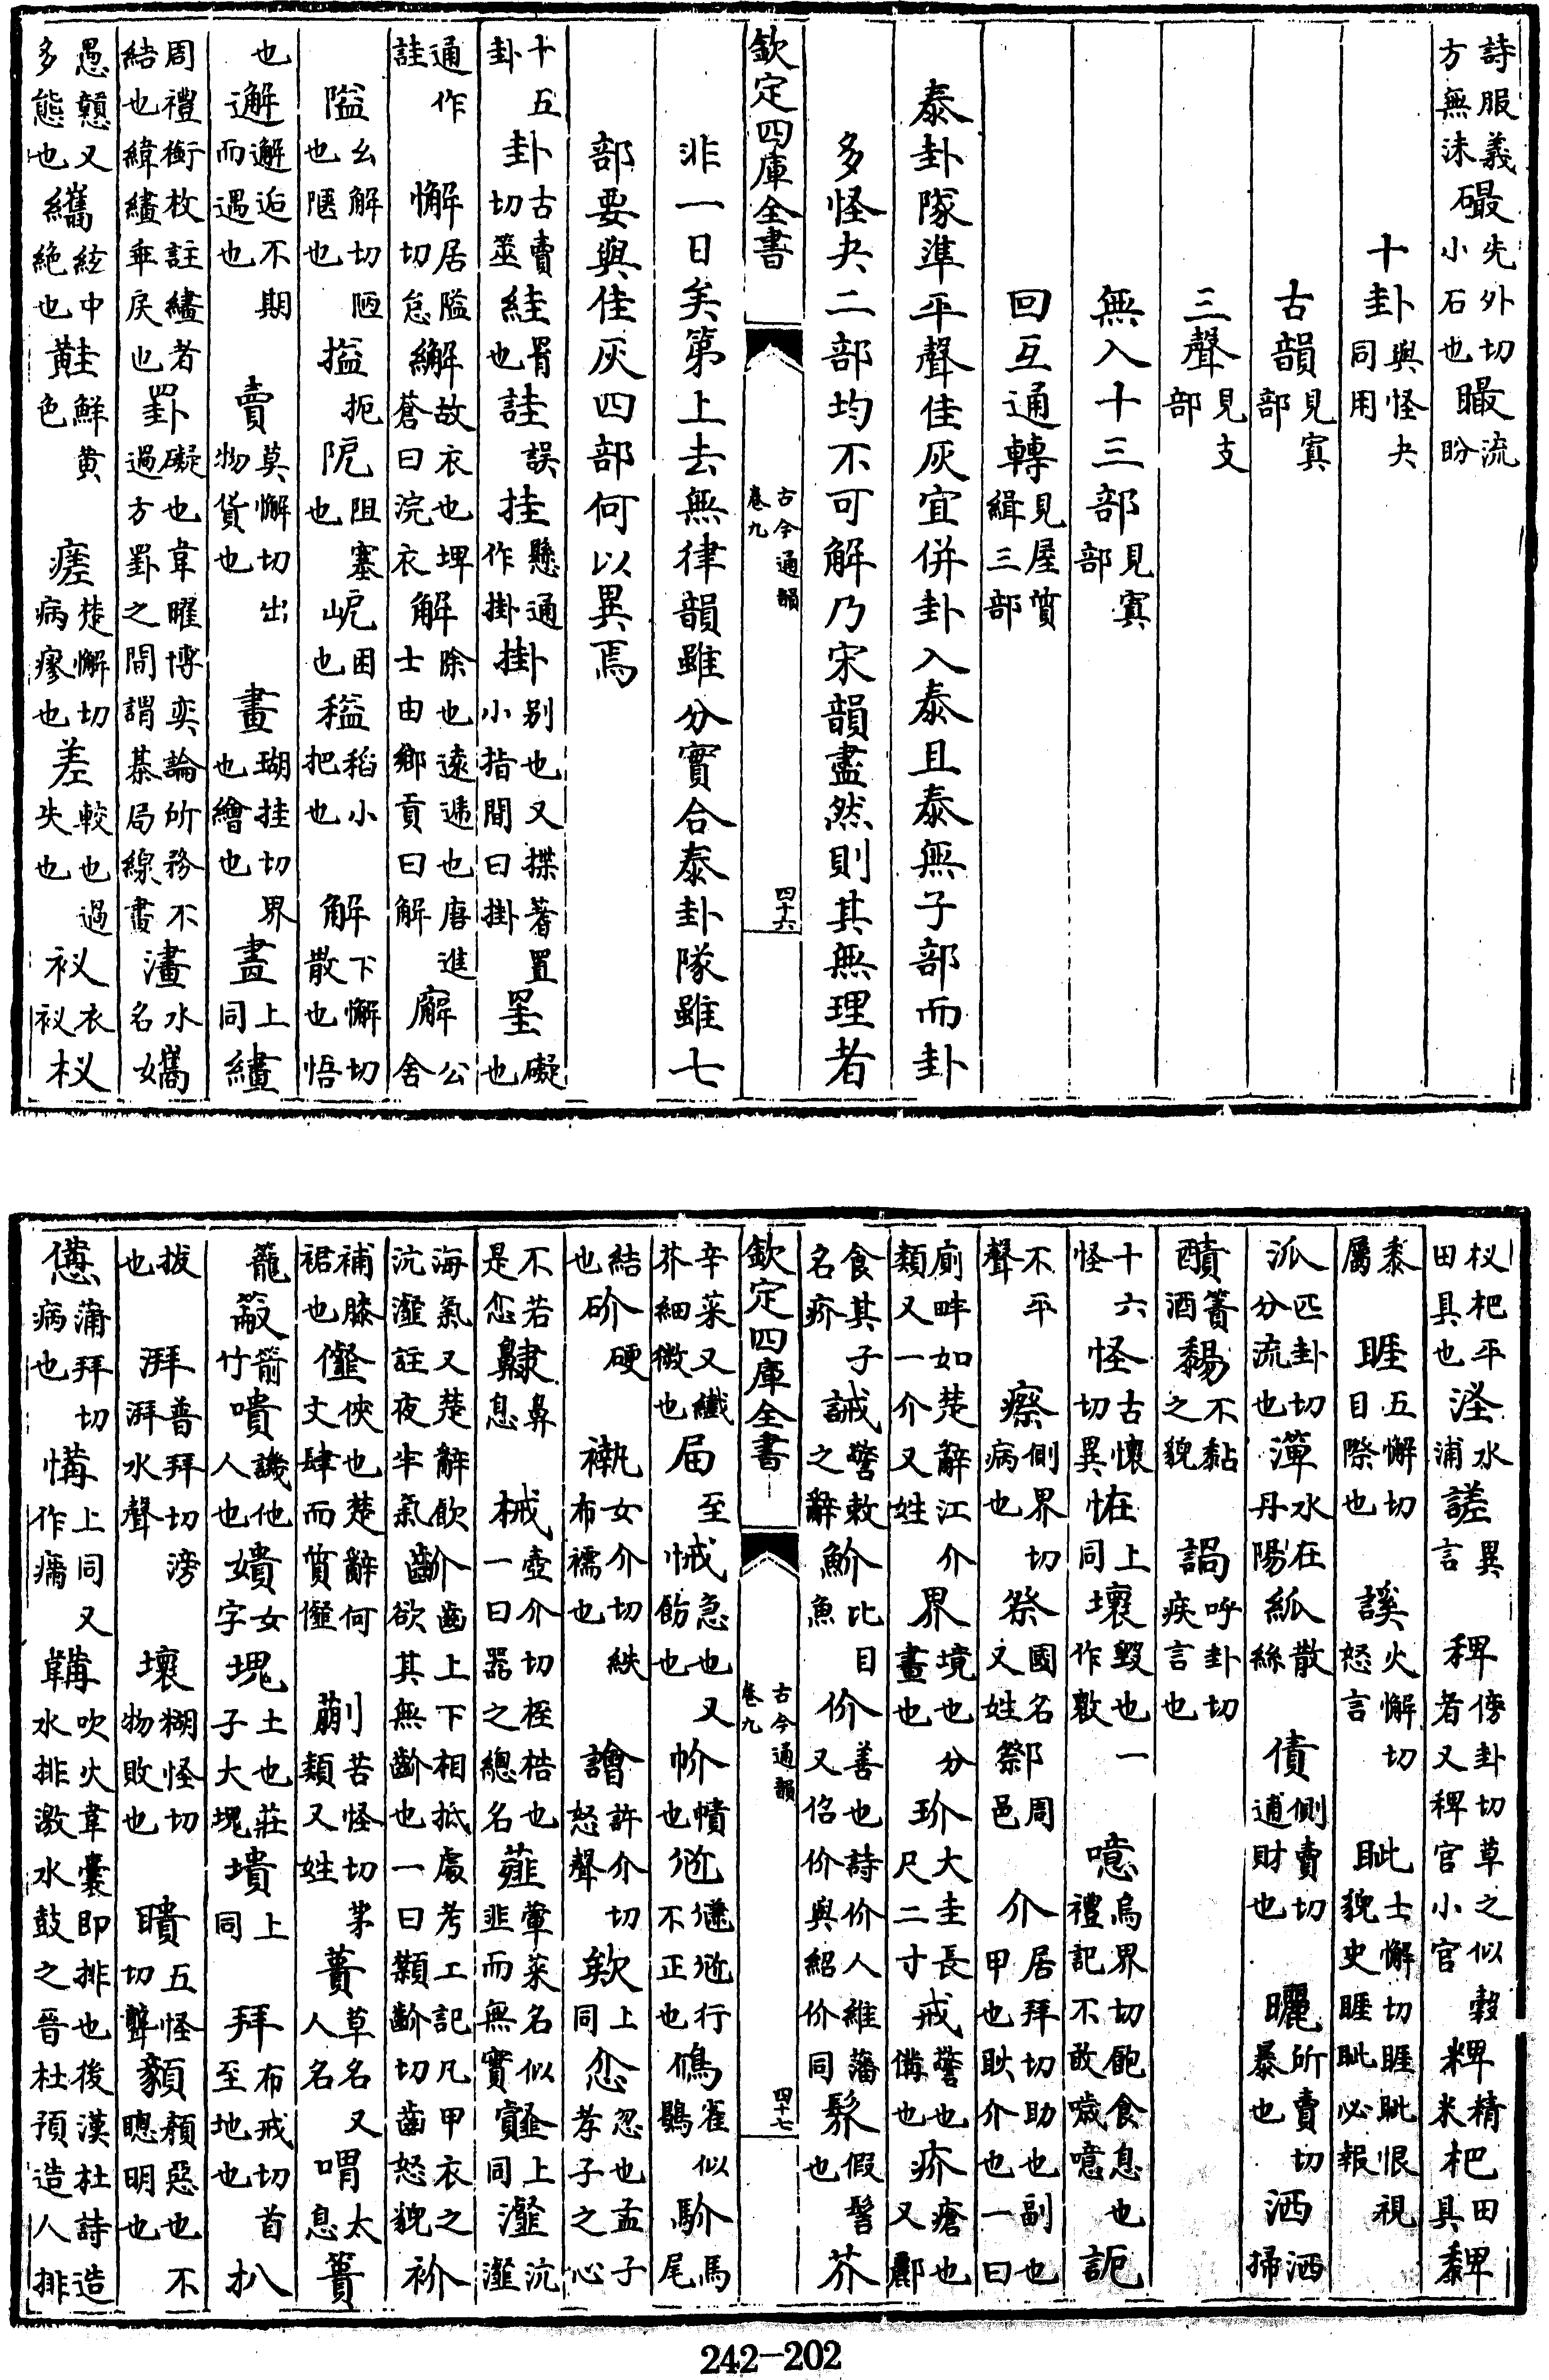 詩服義方無沬礣先外切小石也㬠流盼
十卦與怪夬同用
古韻見寘部
三聲見支部
無入十三部見寘部
回互通轉見屋質緝三部
泰卦隊準平聲佳灰宜併卦入泰且泰無子部而卦
多怪夬二部均不可解乃宋韻盡然則其無理者
欽定四庫全書
古今通韻卷九
四十六
非一日矣第上去無律韻雖分實合泰卦隊雖七
部要與佳灰四部何以異焉
十五卦卦古賣切筮絓罥也詿誤挂懸通作掛掛别也又揲蓍置小指間曰掛罣礙也
通作詿懈居隘切怠繲故衣也埤蒼曰浣衣解除也遠遞也唐進士由鄉貢曰解廨公舍
隘幺解切陋也陿也搤扼阨阻塞也㞾困也䅬稻小把也解下懈切散也悟
也邂邂逅不期而遇也賣莫懈切出物貨也畫瑚挂切界也繪也畵上同繣
周禮銜枚註繣者結也緯繣乖戾也罫礙也韋曜博奕論所務不過方罫之間謂棊局線畫澅水名㜇
愚戇又多態也纗絃中絶也黊鮮黄色瘥楚懈切病瘳也差較也過失也衩衣衩杈
杈杷平田具也洷水浦䜺異言稗傍卦切草之似穀者又稗官小官粺精米杷田具䴽
黍屬睚五懈切目際也謑火懈切怒言眦士懈切睚眦恨視貌史睚眦必報
派匹卦切分流也渒水在丹陽紙散絲債側賣切逋財也曬所賣切暴也洒洒掃
䤍酒䉛不黏之貌䛻呼卦切疾言也
十六怪怪古懷切異恠上同壞毁也一作㱮噫烏界切飽食息也禮記不敢噦噫詬
不平聲瘵側界切病也祭國名又姓鄒周邑介居拜切助也副也甲也耿介也一曰
廁畔如楚辭江介類又一介又姓界境也分畫也玠大圭長尺二寸戒警也備也疥瘡也又酈
食其子名疥誡警敕之辭魪比目魚价善也詩价人維藩又佋价與紹价同髹假髻也芥
欽定四庫全書
古今通韻卷九
四十七
辛菜又纖芥細微也届至悈急也又飭也帉幘也𢓜𢕬𢓜行不正也鳽雀似鶡駴馬尾
結也砎硬𧞤女介切袾布襦也譮許介切怒聲欸上同忿忽也孟子孝子之心
不若是恝齂鼻息械壺介切桎梏也一曰器之總名薤葷菜名似韭而無實䪥上同瀣沆瀣
海氣又楚辭飲沆瀣註夜半氣齘齒上下相抵處考工記凡甲衣之欲其無齘也一曰䫬齘切齒怒貌衸
補膝裙也㒠俠也楚辭何文肆而質㒠蒯苦怪切茅類又姓蕢草名又人名喟太息簣
籠䉛箭竹嘳譏他人也嬇女字塊土也莊子大塊墤上同拜布戒切首至地也扒
拔也湃普拜切滂湃水聲壞糊怪切物敗也聵五怪切聾顡頟惡也不聰明也
憊蒲拜切病也𢞟上同又作痡韛吹火韋囊即排也後漢杜詩造水排激水鼓之晉杜預造人排
242-202